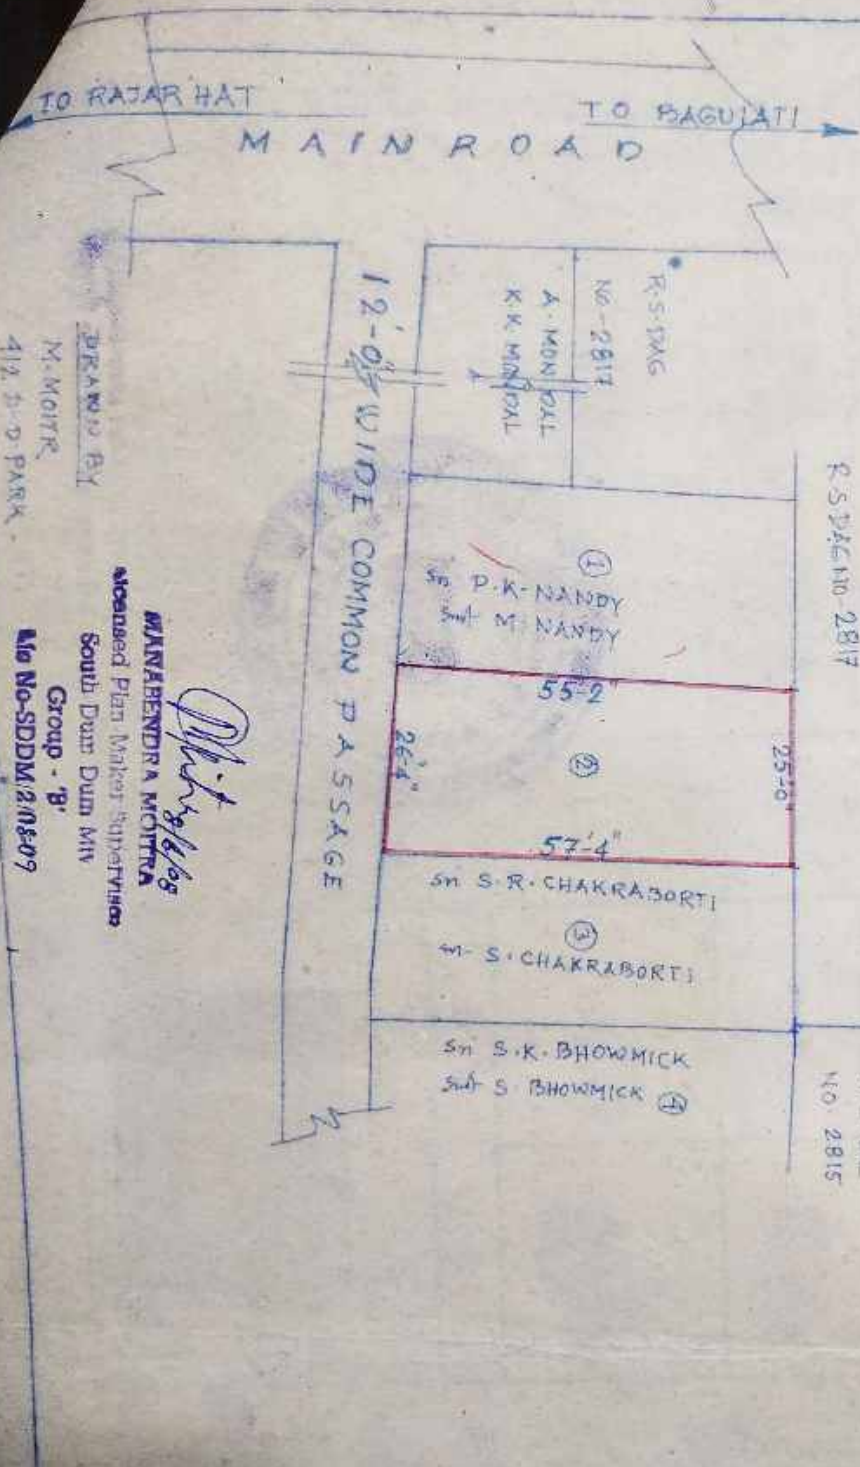 TO RAJARHAT
TO BAGUIATI
MAIN ROAD
R.S. DAG
NO - 2817
A. MONDAL
K.K. MONDAL
12'-0" WIDE COMMON PASSAGE
R.S DAG NO 2817
①
P.K. NANDY
Smt M. NANDY
55'-2"
②
26'-4"
25'-0"
57'-4"
Sri S.R. CHAKRABORTI
③
S. CHAKRABORTI
Sri S.K. BHOWMICK
Smt S. BHOWMICK ④
NO. 2815
DRAWN BY
M. MOITR
D.D PARK.
8/6/08
MANABENDRA MOITRA
Licensed Plan Maker Supervisor
South Dum Dum
Group - 'B'